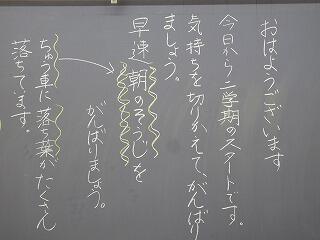 おはようございます
今日から二学期のスタートです。
気持ちを切りかえて、がんばり
ましょう。
早速朝のそうじを
がんばりましょう。
ちゅう車に落ち葉がたくさん
落ちています。